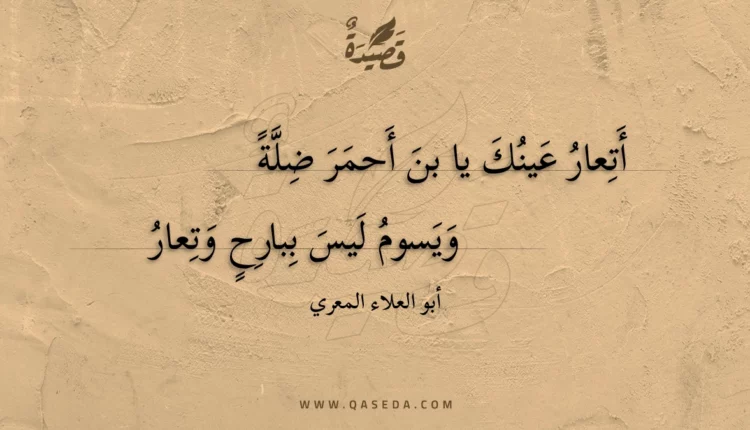 قَصِيدَةٌ
أَتِعارُ عَينُكَ يا بنَ أَحمَرَ ضِلَّةً
وَيَسومُ لَيسَ بِبارِحٍ وَتِعارُ
أبو العلاء المعري
WWW.QASEDA.COM